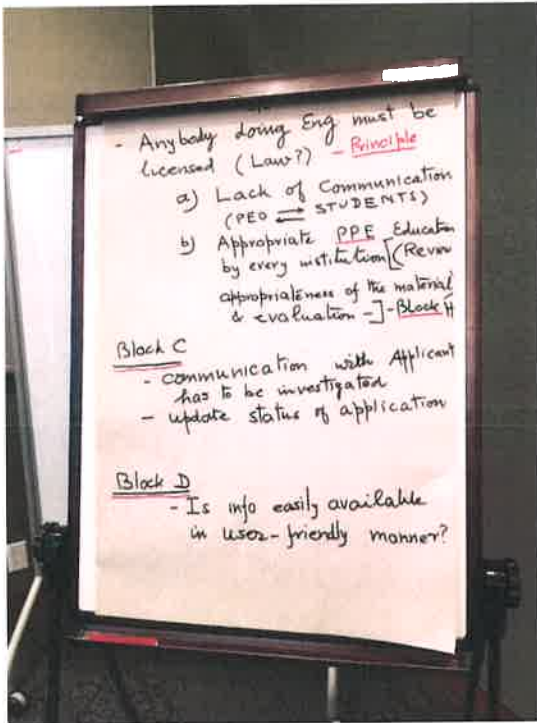 - Anybody doing Eng must be
licensed (Law?) - Principle
a) Lack of Communication
(PEO ⇄ STUDENTS)
b) Appropriate PPE Education
by every institution [(Review
appropriateness of the material
& evaluation -] - Block H
Block C
- communication with Applicant
has to be investigated
- update status of application
Block D
- Is info easily available
in user-friendly manner?